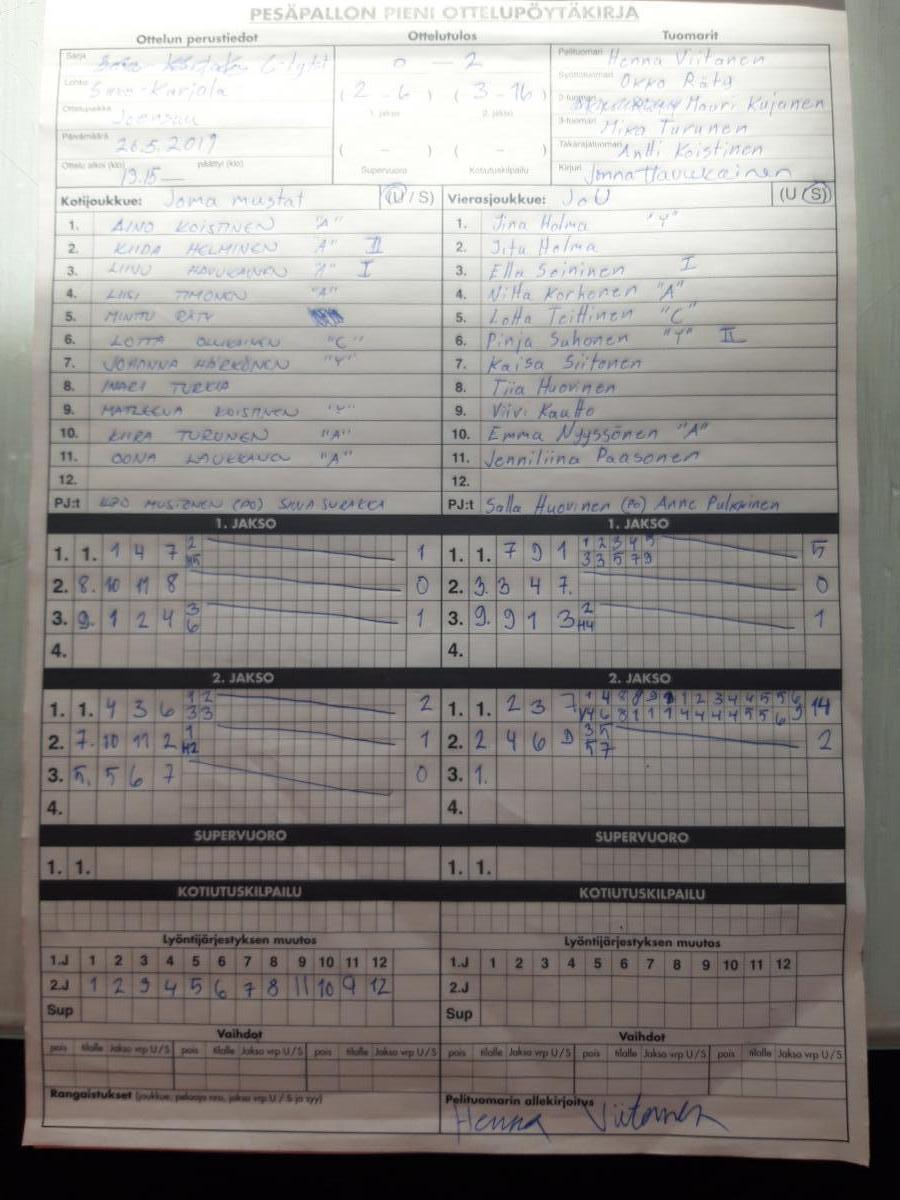 PESÄPALLON PIENI OTTELUPÖYTÄKIRJA
Ottelun perustiedot Ottelutulos Tuomarit
Sarja C-tytöt 0 – 2 Pelituomari Henna Viitanen
Lohko Savo-Karjala (2 - 6) (3 - 16) Syöttötuomari Okko Räty
1. jakso 2. jakso
Ottelupaikka Joensuu 2-tuomari Mauri Kujanen
Päivämäärä 26.5.2019 3-tuomari Mika Turunen
( - ) ( - ) Takarajatuomari Antti Koistinen
Ottelu alkoi (klo) 19.15 — päättyi (klo) Supervuoro Kotiutuskilpailu Kirjuri Jonna Havukainen
Kotijoukkue: Joma mustat (U / S) Vierasjoukkue: JoU (U / S)
1. AINO KOISTINEN "A" 1. Jina Holma "Y"
2. KIIDA HELMINEN "A" II 2. Jitu Holma
3. LINU HAVUKAINEN "A" I 3. Ella Soininen I
4. LIISI TIMONEN "A" 4. Niitta Korhonen "A"
5. MINTTU RÄTY 5. Lotta Teittinen "C"
6. LOTTA OLLIKAINEN "C" 6. Pinja Suhonen "Y" II
7. JOHANNA HÄRKÖNEN "Y" 7. Kaisa Siitonen
8. INARI TURKIA 8. Tiia Huovinen
9. MATLEENA KOISTINEN "Y" 9. Viivi Kautto
10. KIIRA TURUNEN "A" 10. Emma Nyyssönen "A"
11. OONA LAUKKANEN "A" 11. Jenniliina Paasonen
12. 12.
PJ:t MUSTONEN (PO) SURAKKA PJ:t Salla Huovinen (PO) Anne Pulkkinen
1. JAKSO 1. JAKSO
1. 1. 1 4 7 2 1 1. 1. 7 9 1 1 2 3 4 5 5
3 3 5 7 9
2. 8. 10 11 8 0 2. 3. 3 4 7. 0
3. 9. 1 2 4 3 1 3. 9. 9 1 3 2 1
6 H4
4. 4.
2. JAKSO 2. JAKSO
1. 1. 4 3 6 1 2 2 1. 1. 2 3 7 14
3 3
2. 7. 10 11 2 1 1 2. 2 4 6 9 3 5 2
H2 5 7
3. 5. 5 6 7 0 3. 1.
4. 4.
SUPERVUORO SUPERVUORO
1. 1. 1. 1.
KOTIUTUSKILPAILU KOTIUTUSKILPAILU
Lyöntijärjestyksen muutos Lyöntijärjestyksen muutos
1.J 1 2 3 4 5 6 7 8 9 10 11 12 1.J 1 2 3 4 5 6 7 8 9 10 11 12
2.J 1 2 3 4 5 6 7 8 11 10 9 12 2.J
Sup Sup
Vaihdot Vaihdot
pois tilalle Jakso vrp U/S pois tilalle Jakso vrp U/S pois tilalle Jakso vrp U/S pois tilalle Jakso vrp U/S pois tilalle Jakso vrp U/S pois tilalle Jakso vrp U/S
Rangaistukset (joukkue, pelaaja nro, jakso vrp U / S ja syy) Pelituomarin allekirjoitus
Henna Viitanen